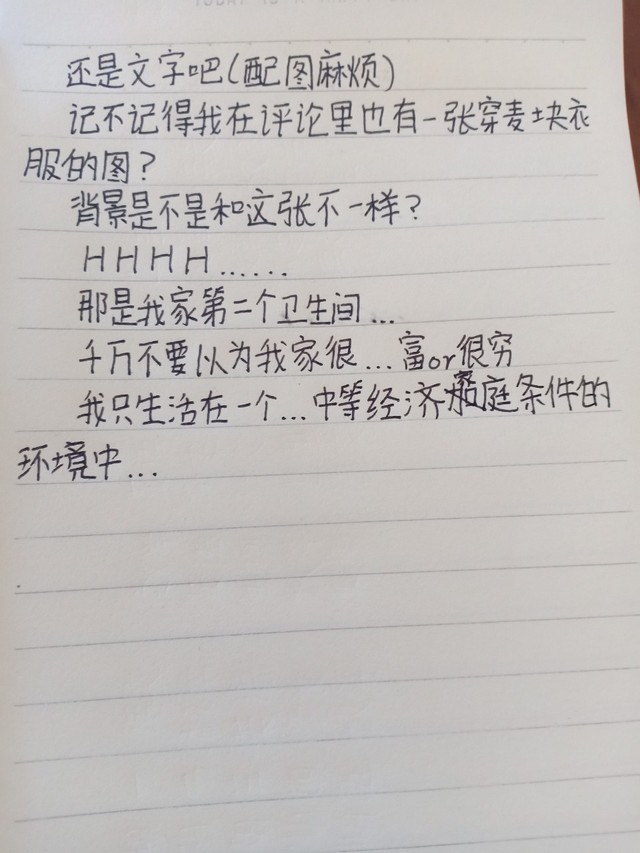 还是文字吧(配图麻烦)
记不记得我在评论里也有一张穿麦块衣
服的图?
背景是不是和这张不一样?
HHHH......
那是我家第二个卫生间...
千万不要以为我家很...富or很穷
我只生活在一个...中等经济家庭条件的
环境中...